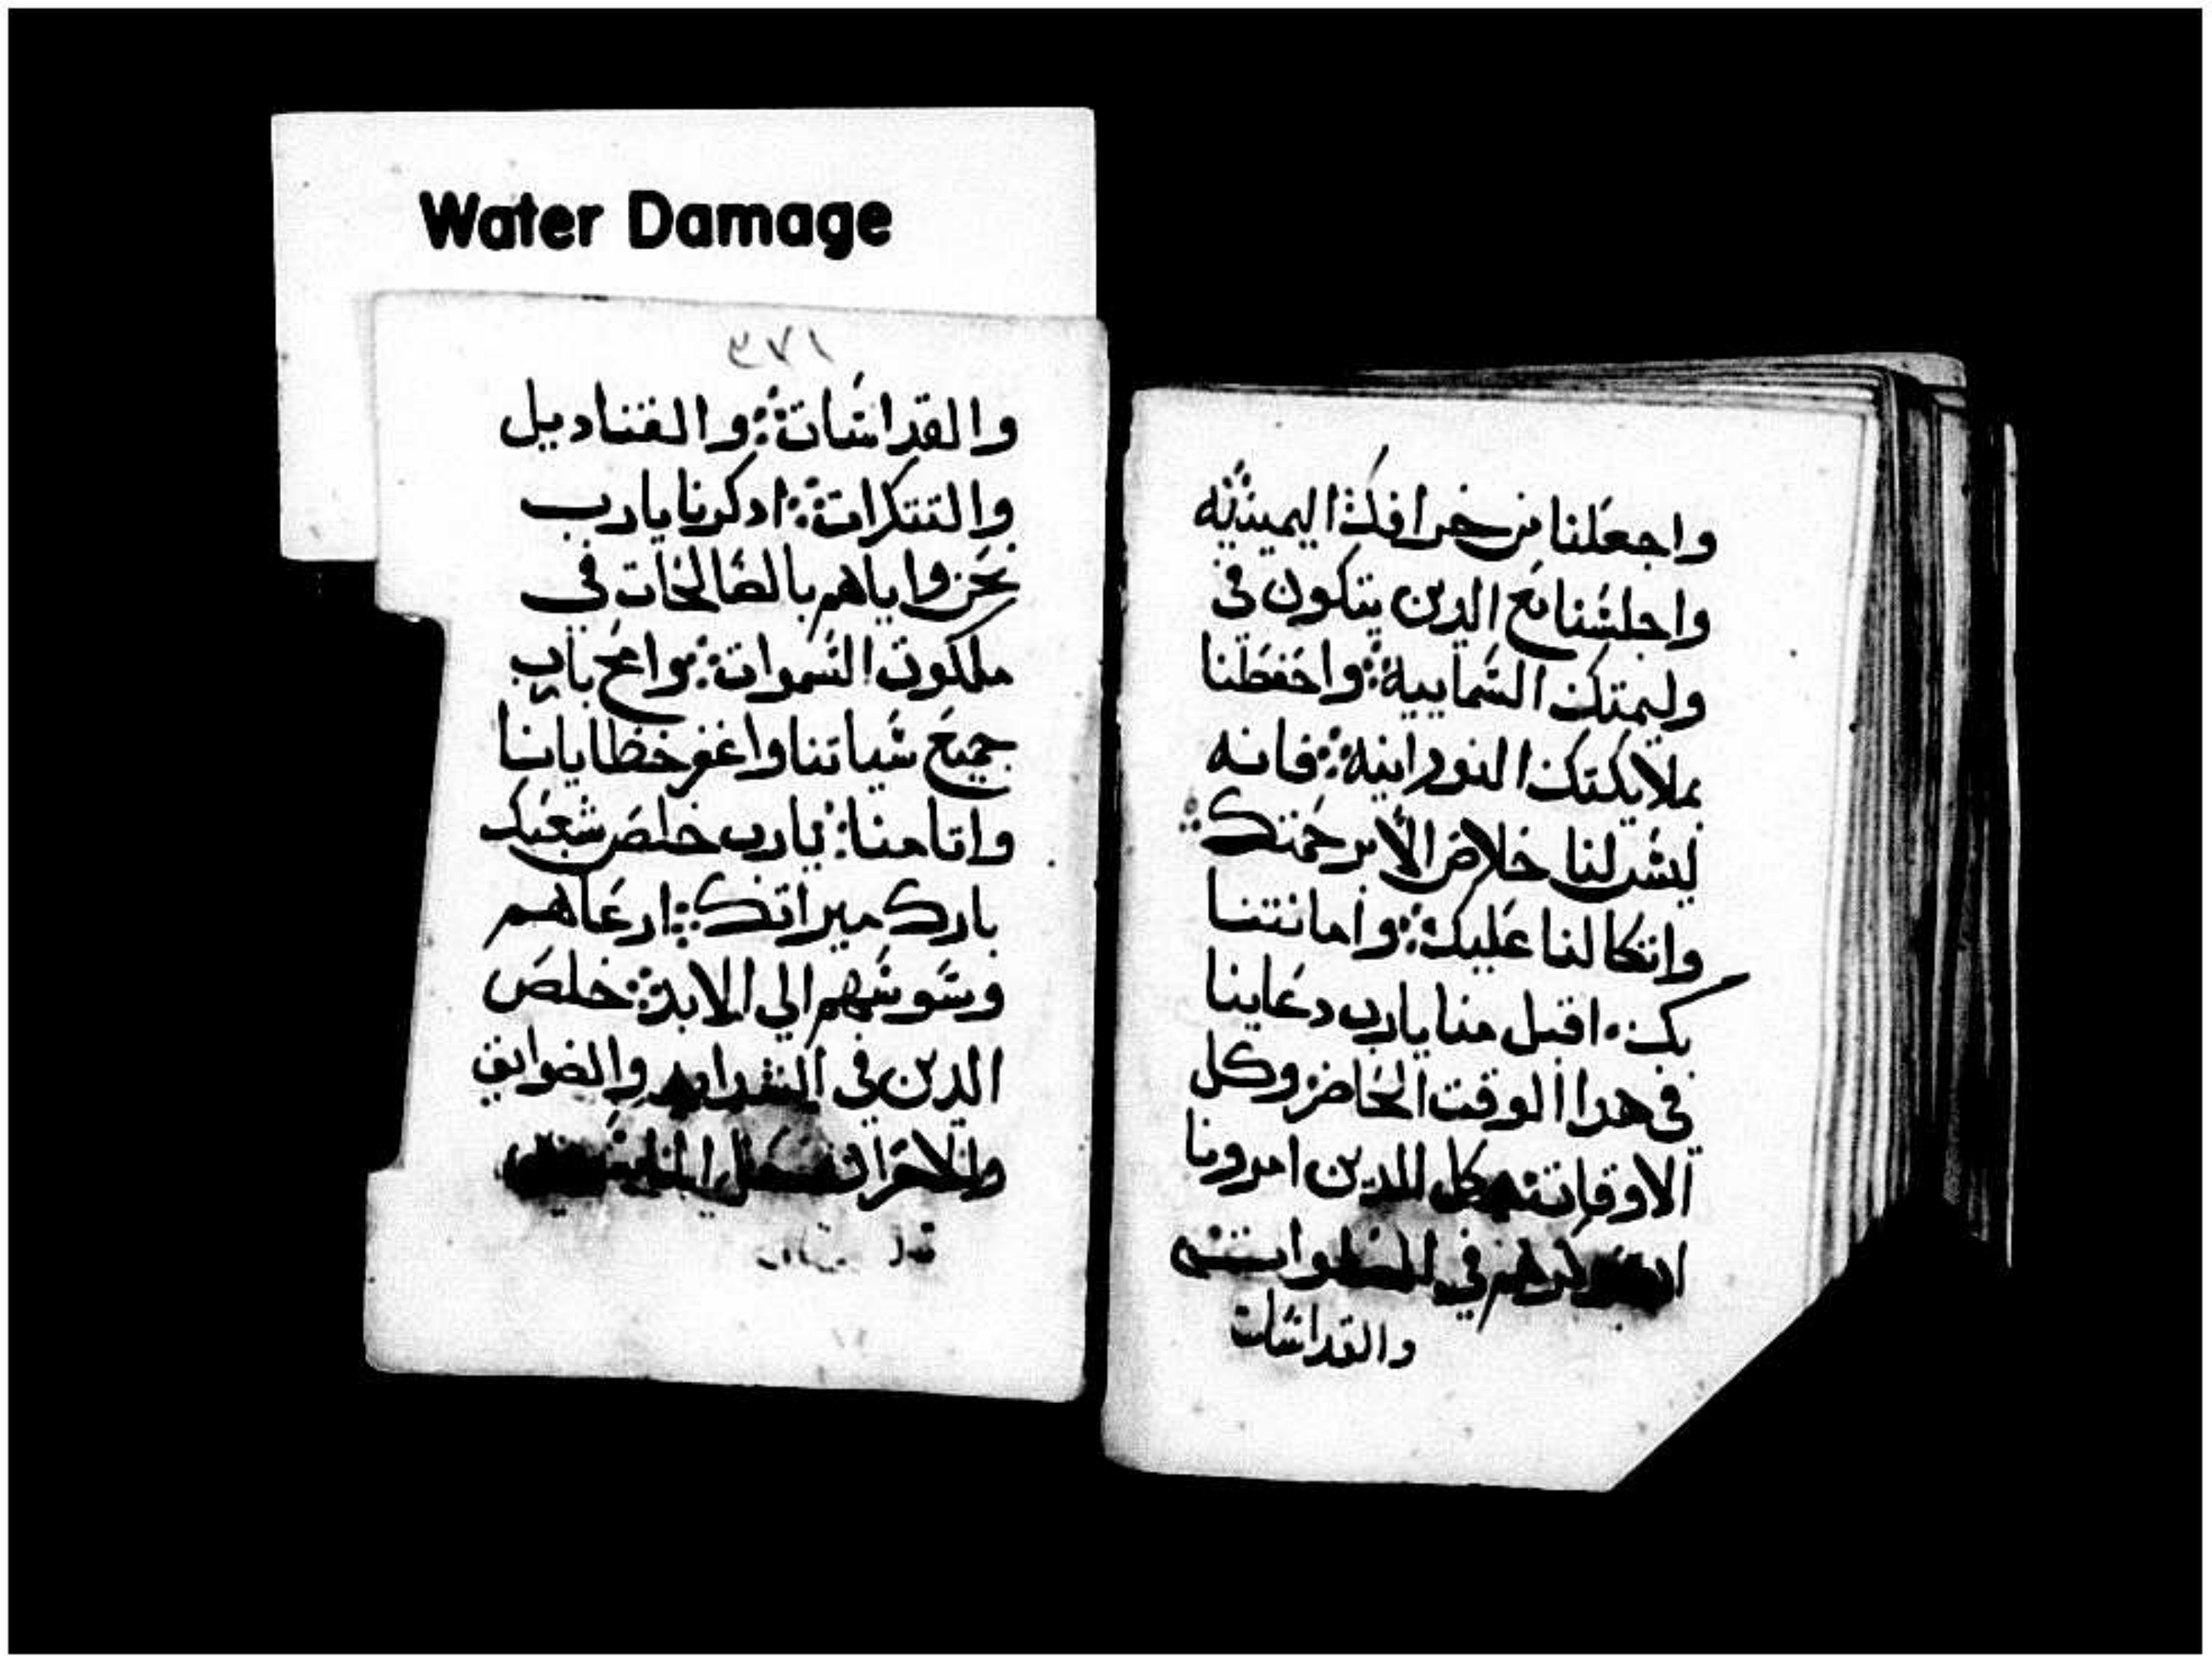 Water Damage
واجعلنا من خرافك اليمينيه
واجلسنا مع الدين يتكون في
وليمتك السمايية ܀ واحفظنا
بملايكتك النورانيه ܀ فانه
ليس لنا خلاص الا برحمتك ܀
واتكالنا عليك ܀ وامانتنا
بك ۰ اقبل منا يارب دعاينا
في هدا الوقت الحاضر وكل
الاوقات وكل الدين امرونا
في
والقداسات
١٧٣
والقداسات ܀ والقناديل
والتدكرات ܀ ادكرنا يارب
نحن واياهم بالصالحات في
ملكوت السموات ܀ وامح يارب
جميع سياتنا واغفر خطايانا
واتامنا ܀ يارب خلص شعبك
بارك ميراتك ܀ ارعاهم
وسوسهم الي الابد ܀ خلص
الدين في والضوايق
والاحزان